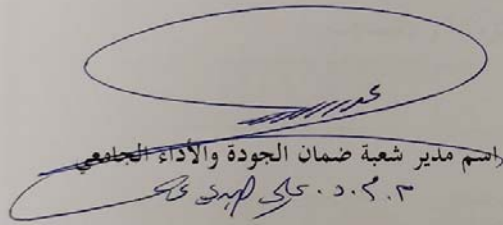 اسم مدير شعبة ضمان الجودة والأداء الجامعي
م.م.د. علي مهدي